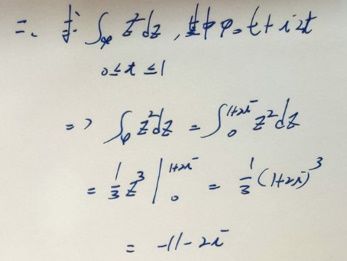 二、求 ∫_φ z²dz，其中 φ = t + i2t
0≤t≤1
=> ∫_φ z²dz = ∫_0^{1+2i} z²dz
= 1/3 z³ |_0^{1+2i} = 1/3 (1+2i)³
= -11-2i